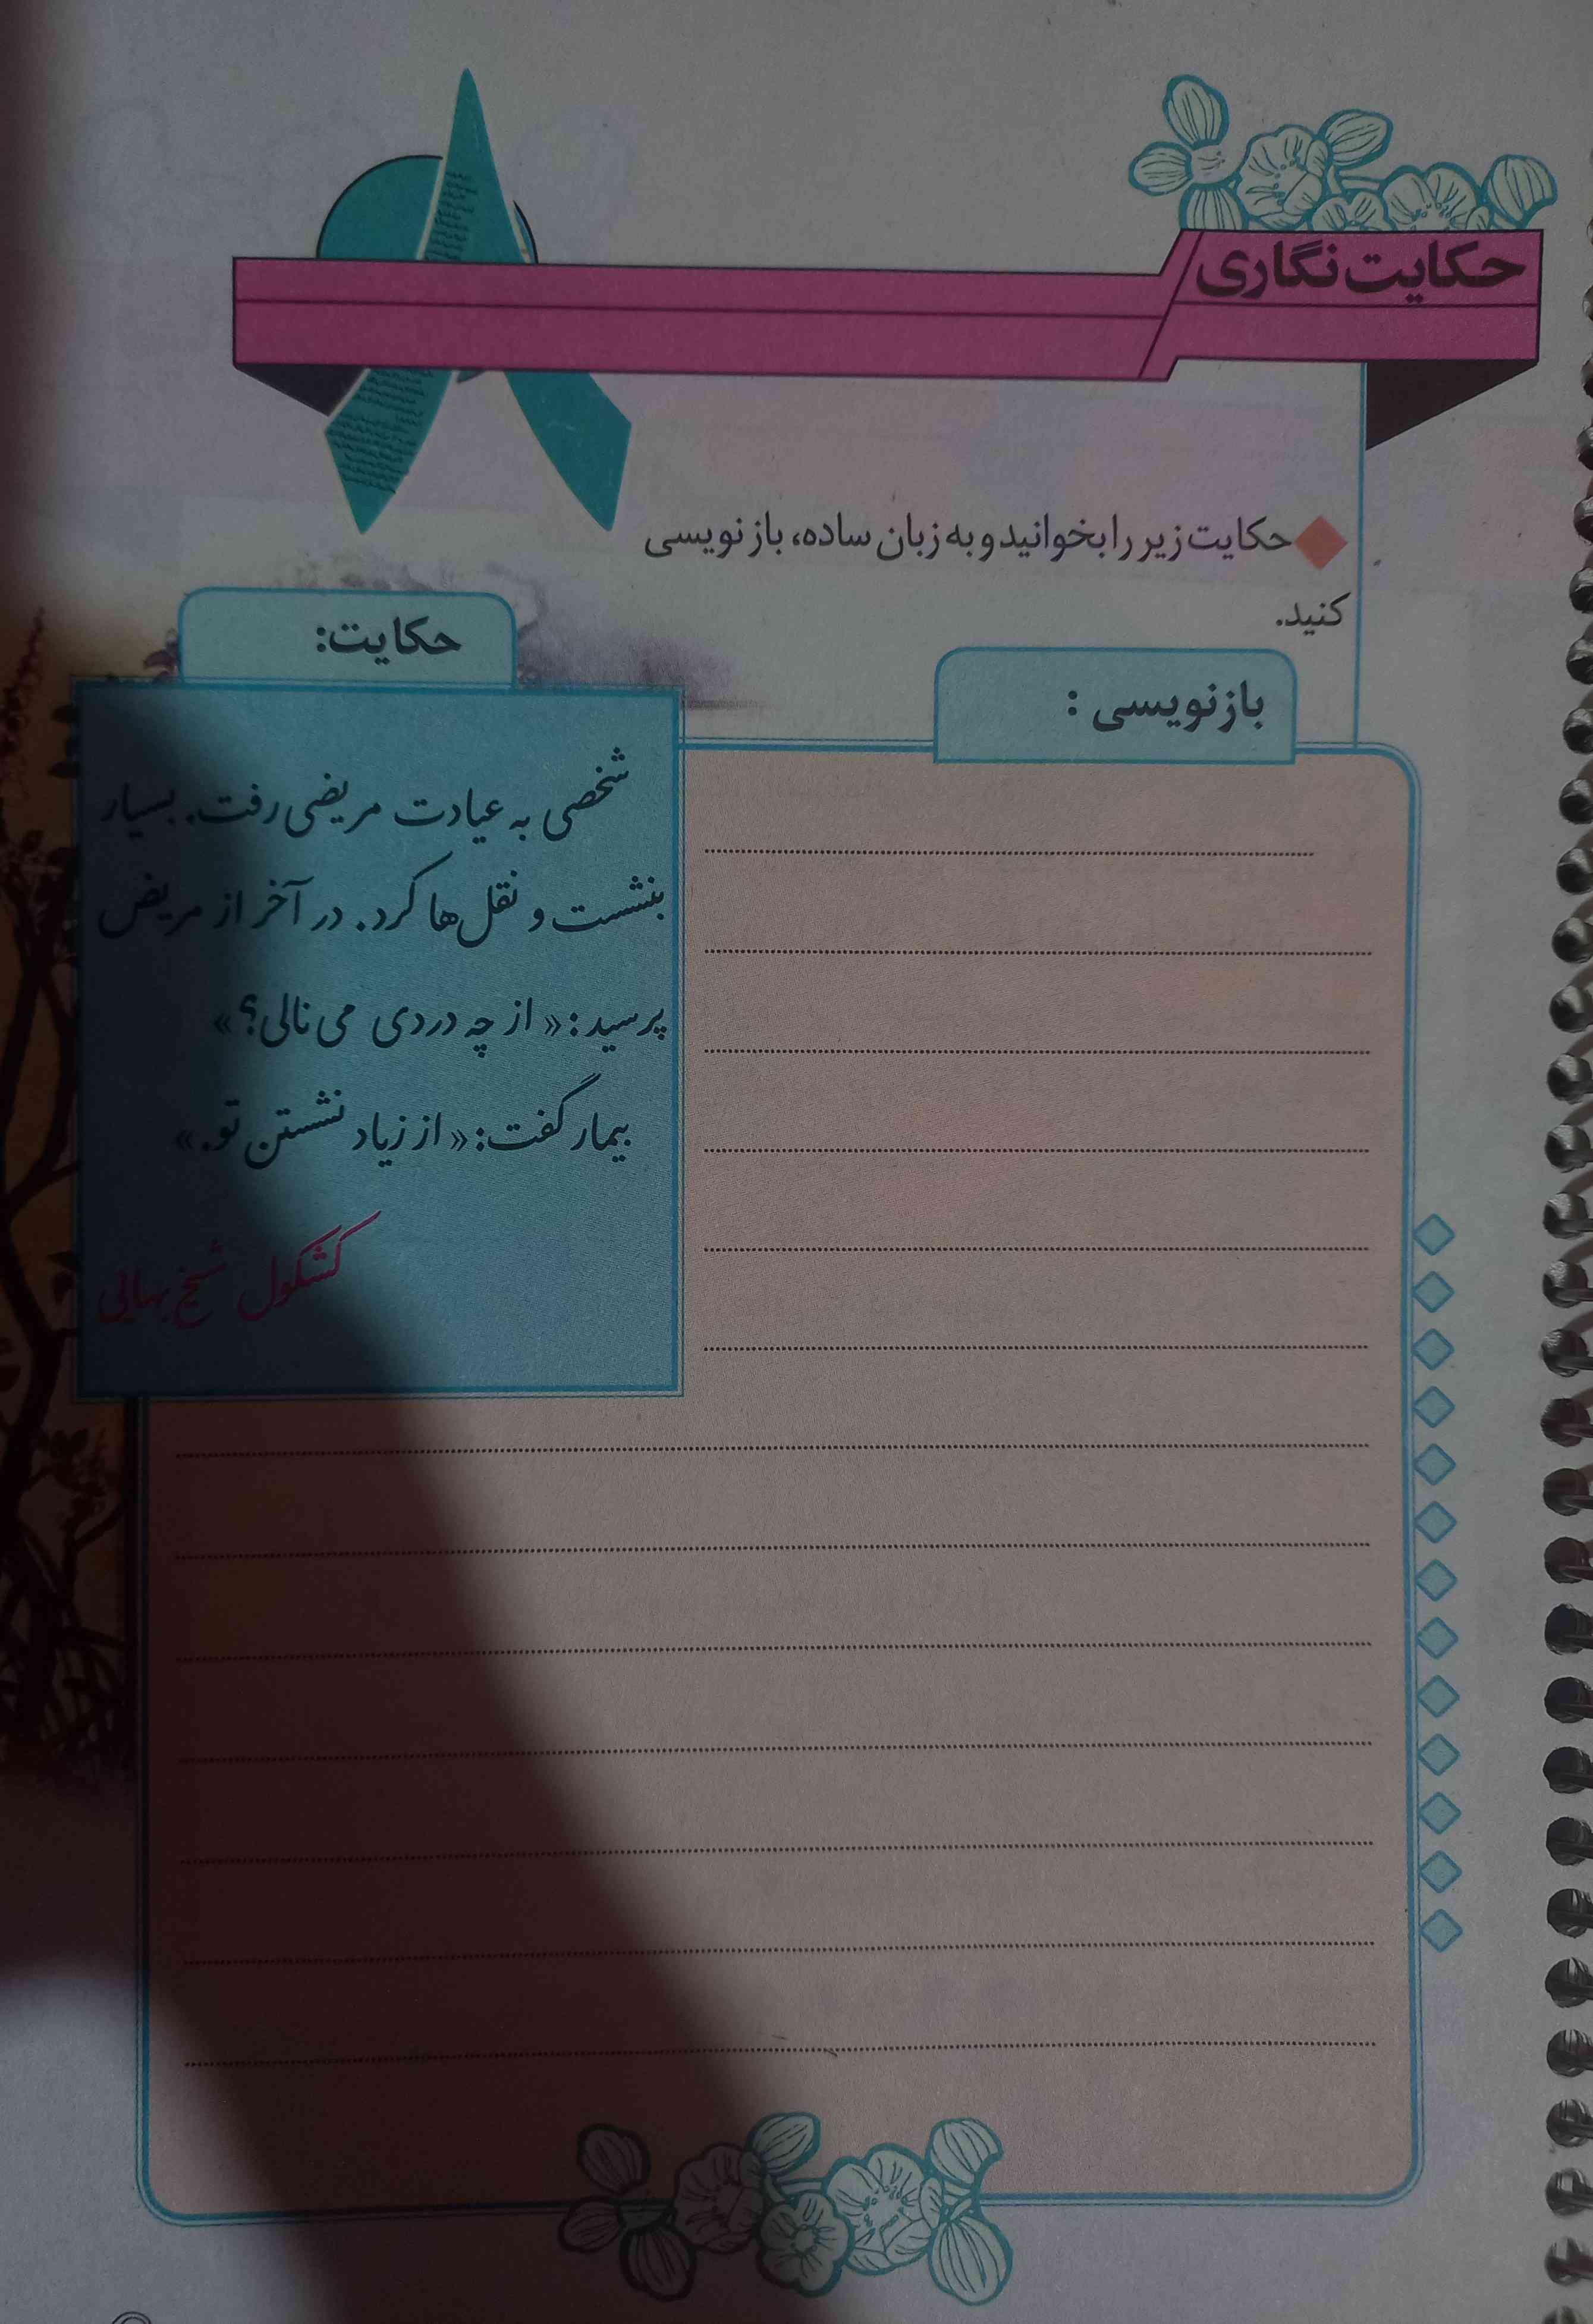 حکایت نگاری
حکایت زیر را بخوانید و به زبان ساده، باز نویسی
کنید.
بازنویسی :
حکایت:
شخصی به عیادت مریضی رفت. بسیار
بنشست و نقل‌ها کرد. در آخر از مریض
پرسید: «از چه دردی می‌نالی؟»
بیمار گفت: «از زیاد نشستن تو.»
کشکول شیخ بهایی